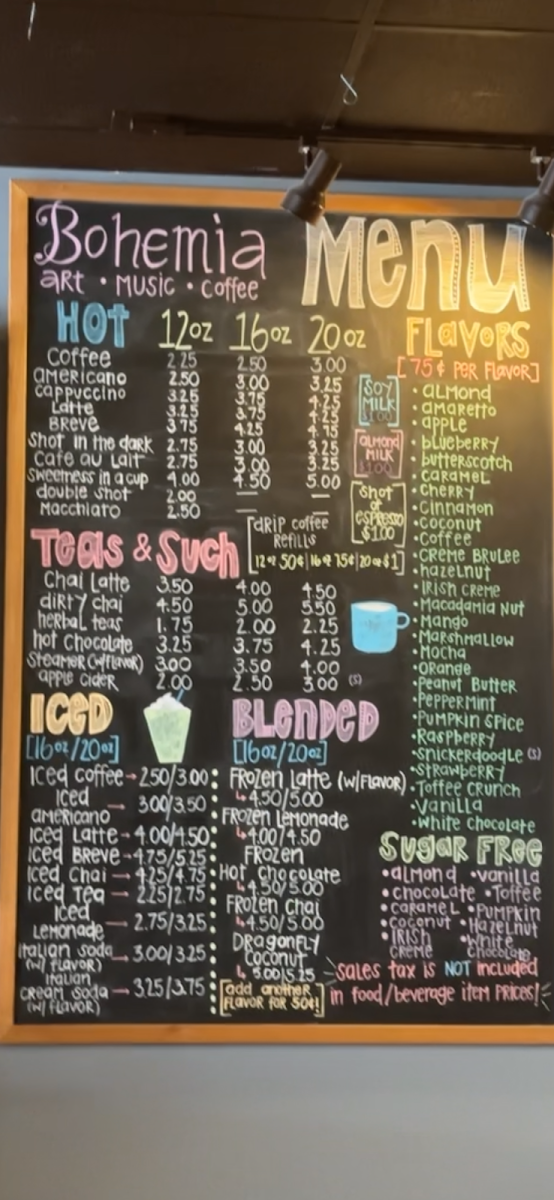 Bohemia
art • music • coffee
Menu
HOT 12oz 16oz 20oz
Coffee 2.25 2.50 3.00
americano 2.50 3.00 3.25
cappuccino 3.25 3.75 4.25
Latte 3.25 3.75 4.25
Breve 3.75 4.25 4.75
Shot in the dark 2.75 3.00 3.25
Cafe au Lait 2.75 3.00 3.25
Sweetness in a cup 4.00 4.50 5.00
double shot 2.00 — —
Macchiato 2.50 — —
[Soy
MILK
$1.00]
[almond
MILK
$1.00]
[Shot
of
espresso
$1.00]
[drip coffee
Refills
12oz 50¢ | 16oz 75¢ | 20oz $1]
Teas & Such
Chai Latte 3.50 4.00 4.50
dirty chai 4.50 5.00 5.50
herbal teas 1.75 2.00 2.25
hot Chocolate 3.25 3.75 4.25
Steamer (w/flavor) 3.00 3.50 4.00
apple cider 2.00 2.50 3.00 (S)
ICED
[16oz/20oz]
Iced coffee → 2.50/3.00
Iced
americano — 3.00/3.50
Iced Latte → 4.00/4.50
Iced Breve → 4.75/5.25
Iced Chai → 4.25/4.75
Iced Tea — 2.25/2.75
Iced
Lemonade — 2.75/3.25
Italian Soda
(w/ flavor) → 3.00/3.25
Italian
cream soda
(w/ flavor) → 3.25/3.75
BLENDED
[16oz/20oz]
Frozen Latte (w/flavor)
↳ 4.50/5.00
Frozen Lemonade
↳ 4.00/4.50
Frozen
Hot Chocolate
↳ 4.50/5.00
Frozen Chai
↳ 4.50/5.00
Dragonfly
Coconut
↳ 5.00/5.25
[add another
flavor for 50¢!]
FLAVORS
[75¢ per flavor]
• almond
• amaretto
• apple
• blueberry
• butterscotch
• caramel
• cherry
• Cinnamon
• coconut
• Coffee
• creme brulee
• hazelnut
• Irish creme
• Macadamia Nut
• Mango
• Marshmallow
• Mocha
• Orange
• Peanut Butter
• Peppermint
• Pumpkin Spice
• Raspberry
• Snickerdoodle (S)
• Strawberry
• Toffee Crunch
• Vanilla
• White Chocolate
Sugar Free
• almond • vanilla
• chocolate • Toffee
• caramel • Pumpkin
• coconut • Hazelnut
• Irish
creme
• White
Chocolate
Sales tax is NOT included
in food/beverage item prices!